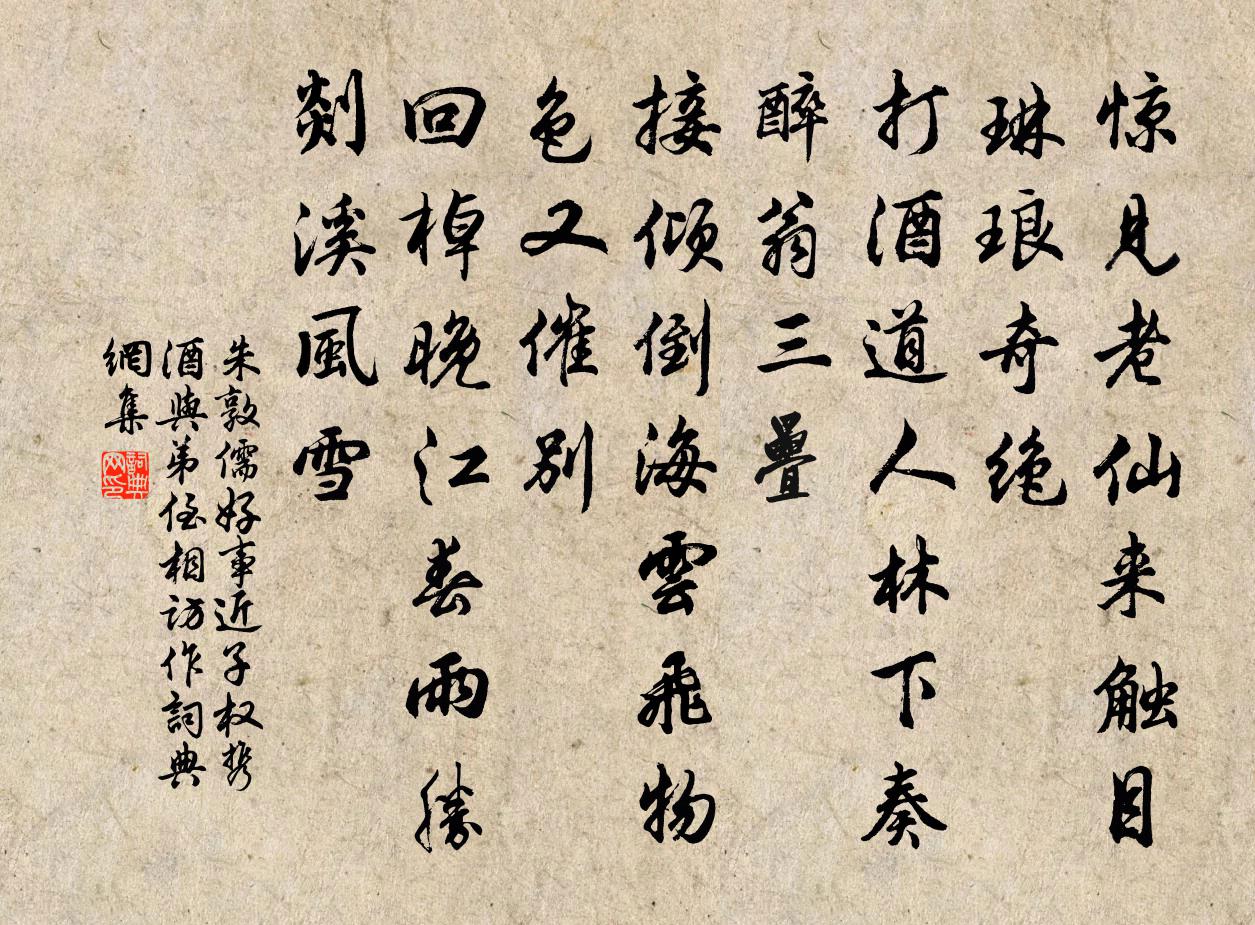 惊见老仙来触目
琳琅奇绝
打酒道人林下奏
醉翁三疊
接倾倒海雲飛物
色又催别
回棹晚江春雨勝
剡溪風雪
朱敦儒好事近子权携
酒與弟侄相访作詞典
網集
詞典
网印